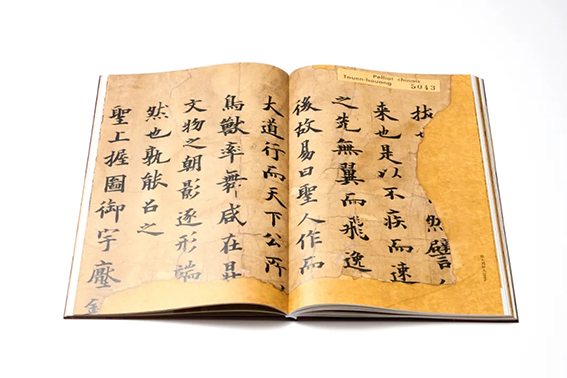 Pelliot chinois
Touen-houang 5043
譬
来也是以不疾而速
之先無翼而飛逸
後故易曰聖人作而
大道行而天下公所
鳥獸率舞咸在
文物之朝影逐形端
然也孰能召之
聖上握圖御宇